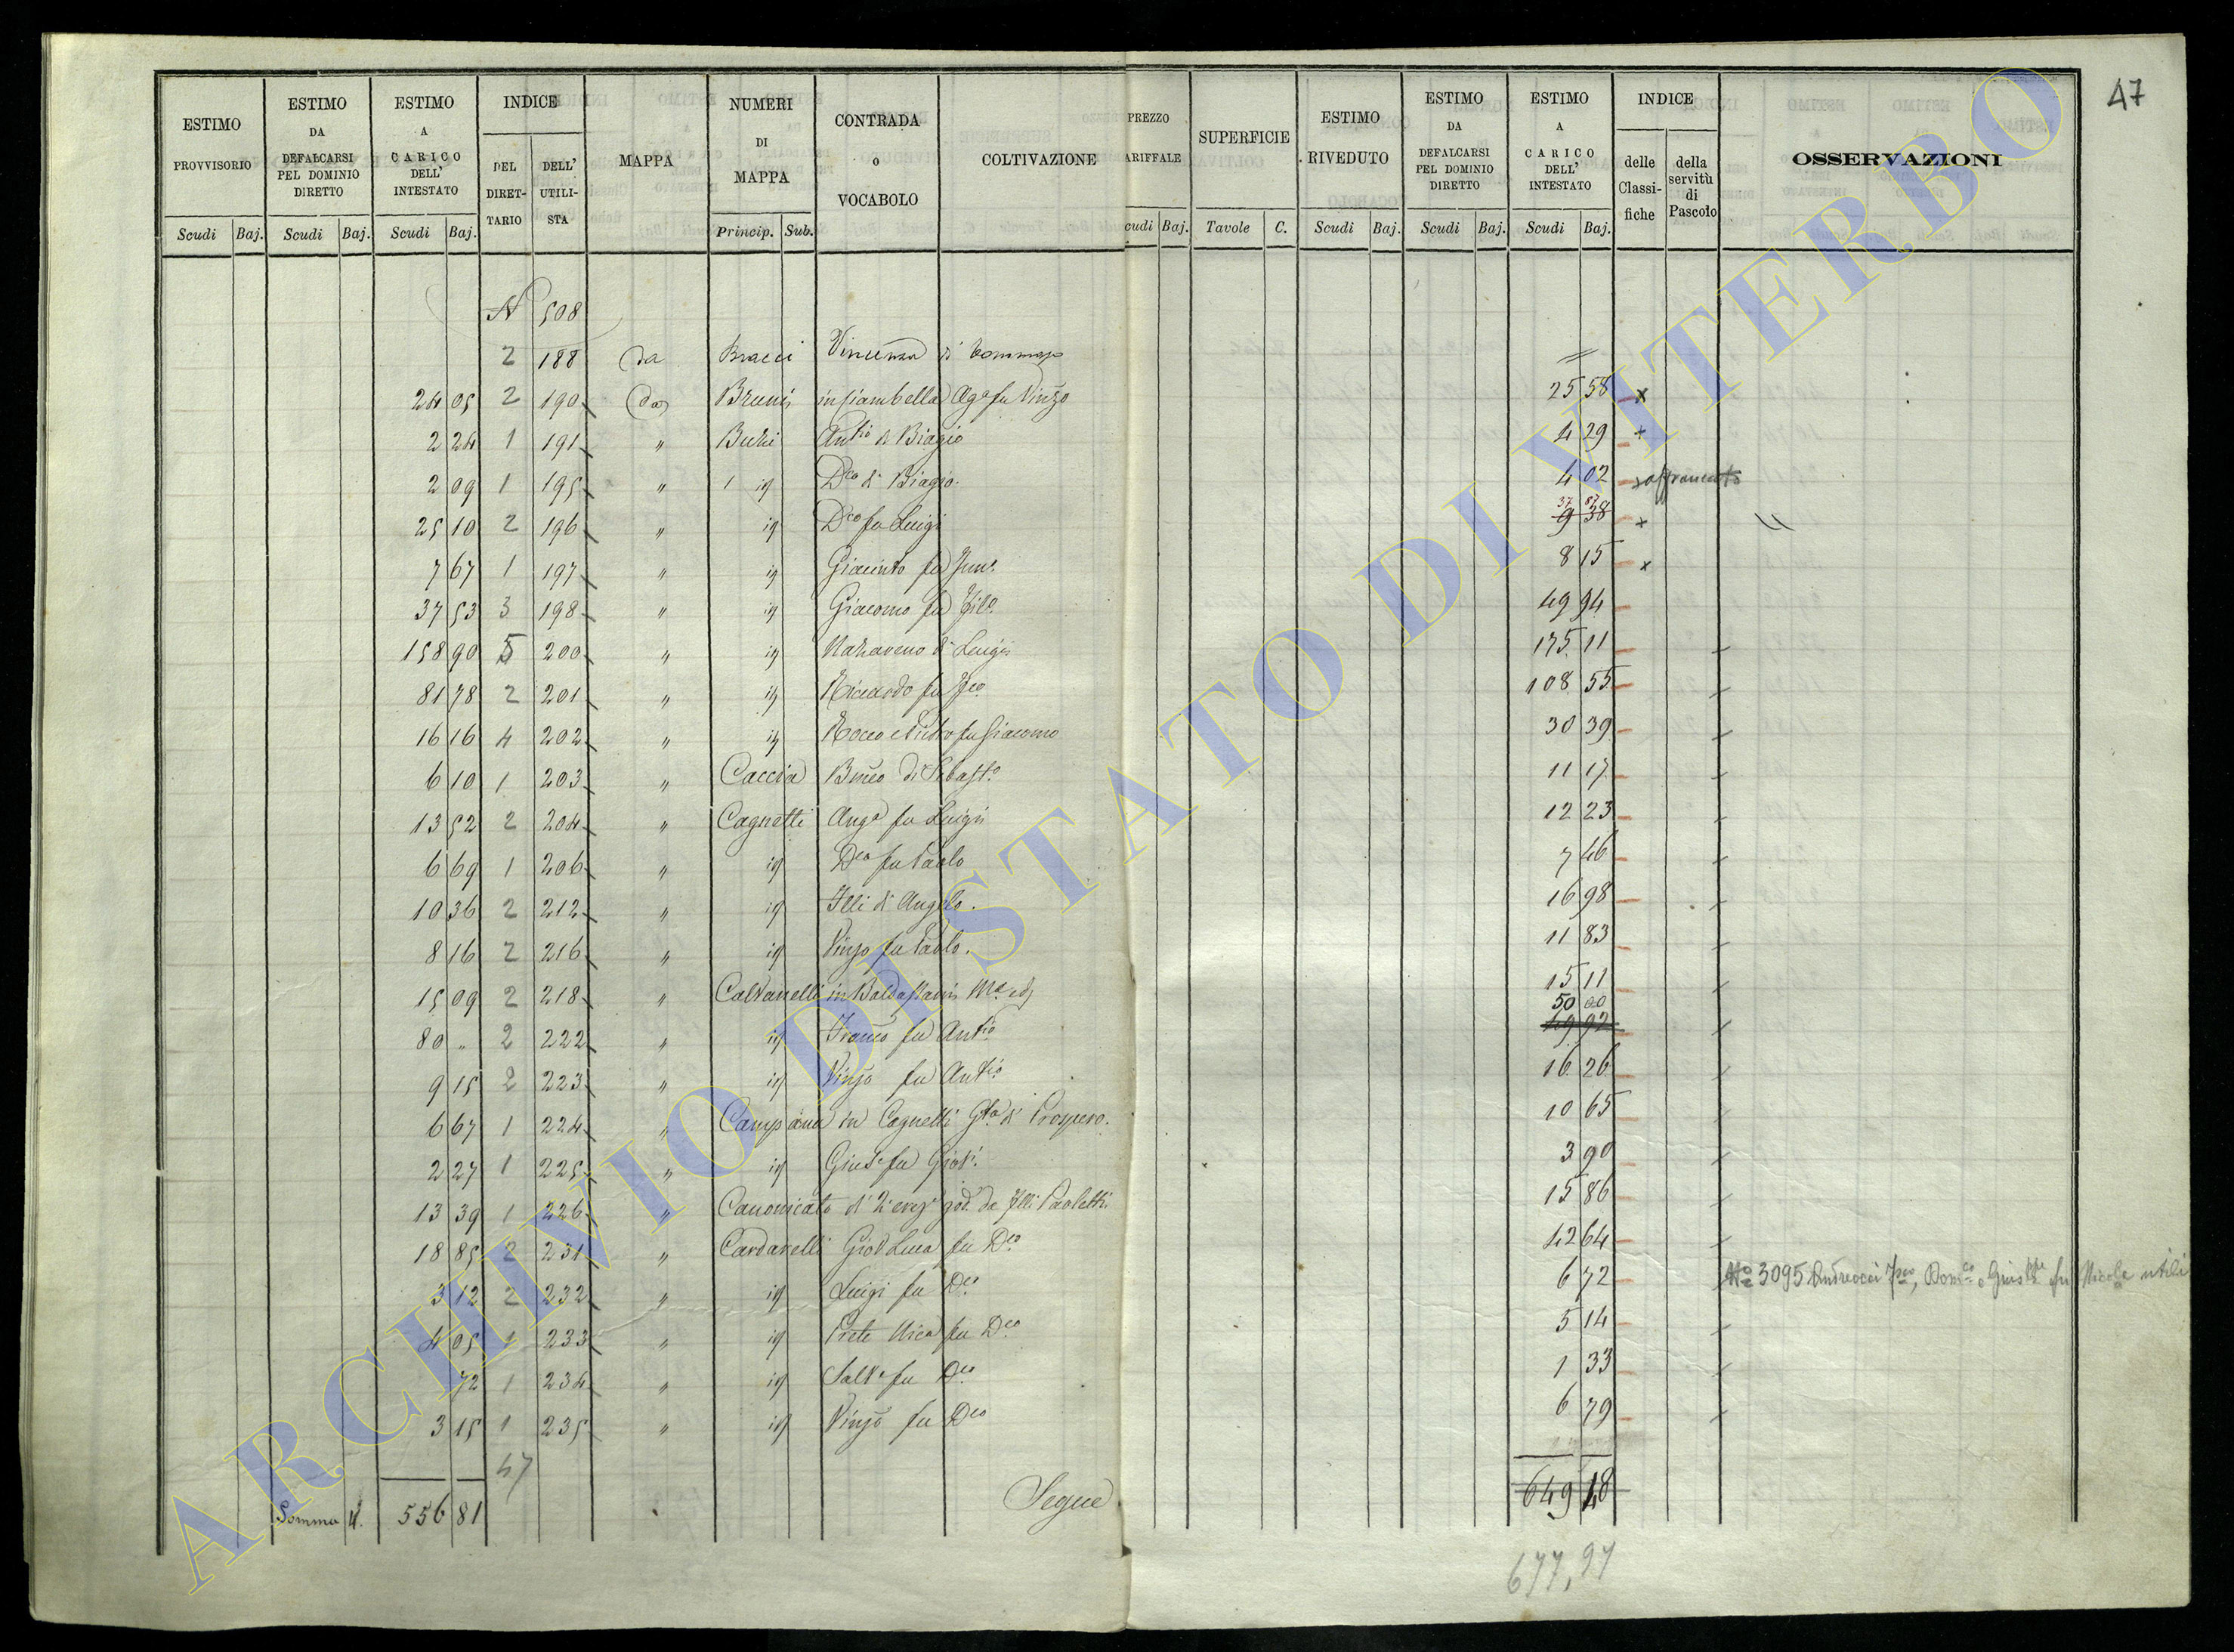 47
ESTIMO PROVVISORIO | ESTIMO DA DEFALCARSI PEL DOMINIO DIRETTO | ESTIMO A CARICO DELL' INTESTATO | INDICE DEL DIRETTARIO | DELL' UTILISTA | MAPPA | NUMERI DI MAPPA | CONTRADA O VOCABOLO | COLTIVAZIONE | PREZZO ARIFFALE | SUPERFICIE | ESTIMO RIVEDUTO | ESTIMO DA DEFALCARSI PEL DOMINIO DIRETTO | ESTIMO A CARICO DELL' INTESTATO | INDICE delle Classifiche | della servitù di Pascolo | OSSERVAZIONI
Scudi Baj. Scudi Baj. Scudi Baj. Princip. Sub. cudi Baj. Tavole C. Scudi Baj. Scudi Baj. Scudi Baj.
N 508
2 188 da Bracci Vincenza di Tommaso
24 05 2 190 da Bruni in Ciambella Aga fu Vinzo 25 58 x
2 24 1 191 " Buzi Antio di Biagio 4 29 x
2 09 1 195 " id Dco di Biagio 4 02 affrancato
25 10 2 196 " id Dco fu Luigi 37 87 9 38 x "
7 67 1 197 " id Giacinto fu 8 15 x
37 53 3 198 " id Giacomo fu Filo 49 94
158 90 5 200 " id Nazareno di Luigi 175 11
81 78 2 201 " id Riccardo fu 108 55
16 16 4 202 " id Rocco e Pietro fu Giacomo 30 39
6 10 1 203 " Caccia di Sebasto 11 17
13 52 2 204 " Cagnetti Anga fu Luigi 12 23
6 69 1 206 " id Dco fu Paolo 7 46
10 36 2 212 " id Flli di Angelo 16 98
8 16 2 216 " id Vinzo fu Paolo 11 83
15 09 2 218 " Calvanelli in Baldassarri Ma 15 11
80 " 2 222 " id Franco fu Antio 50 00 49 92
9 15 2 223 " id Vinzo fu Antio 16 26
6 67 1 224 " Campana in Cagnetti Gta di Prospero 10 65
2 27 1 225 " id Gius fu Giovi 3 90
13 39 1 226 " Canonicato di god da Flli Paoletti 15 86
18 85 2 231 " Cardarelli Giov Luca fu Dco 42 64
3 12 2 232 " id Luigi fu Dco 6 72 No 3095 Andreocci Fsco, Domco e Giuse fu Nicola utili
4 05 1 233 " id Prete Nica fu Dco 5 14
72 1 234 " id Salve fu Dco 1 33
3 15 1 235 " id Vinzo fu Dco 6 79
47
Somma 556 81 Segue 649 18
677,97
ARCHIVIO DI STATO DI VITERBO